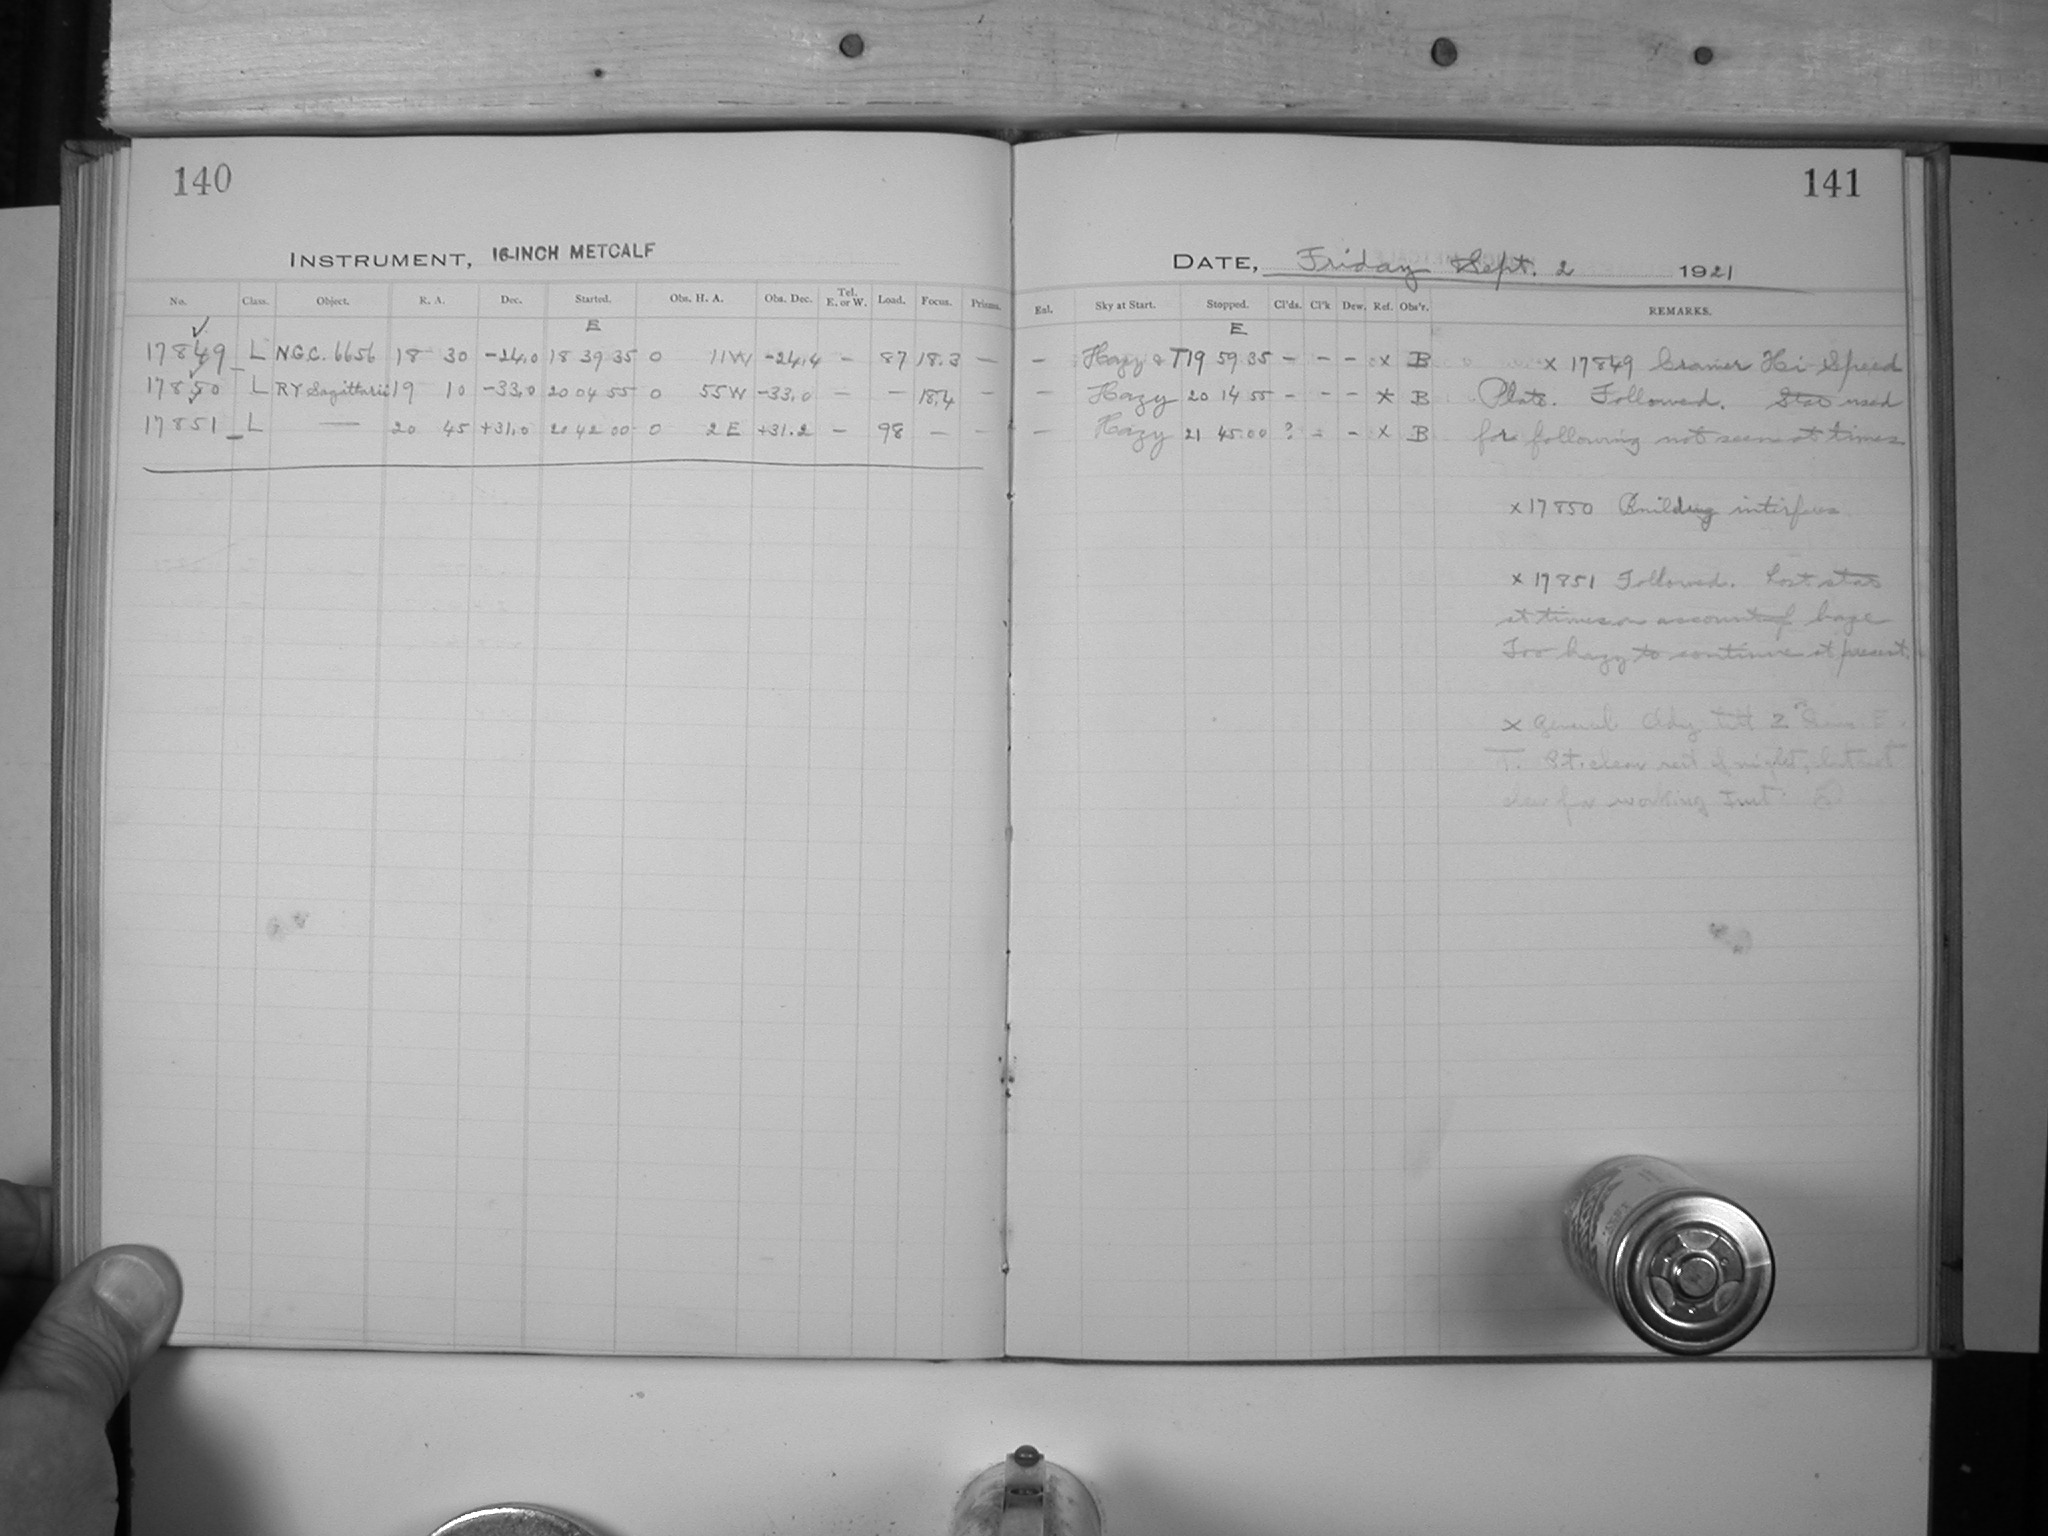 140
141
INSTRUMENT, 16-INCH METCALF
DATE, Friday Sept. 2 1921
No. Class. Object. R. A. Dec. Started. Obs. H. A. Obs. Dec. Tel. E. or W. Load. Focus. Prisms. Exl. Sky at Start. Stopped. Cl'ds. Cl'k Dew. Ref. Obs'r. REMARKS.
E E
17849 L N.G.C. 6656 18 30 -24.0 18 39 35 0 11W -24.4 - 87 18.3 - - Hazy & T 19 59 35 - - - x B x 17849 Cramer Hi-Speed
17850 L RY Sagittarii 19 10 -33.0 20 04 55 0 55W -33.0 - - 18.4 - - Hazy 20 14 55 - - - x B Plate. Followed. Star used
17851 L — 20 45 +31.0 20 42 00 0 2E +31.2 - 98 - - - Hazy 21 45 00 ? - - x B for following not seen at times
x 17850 Building interferes
x 17851 Followed. Lost star
at times on account of haze
Too hazy to continue at present.
x General Cldy till 2 E.
T. Pt. clear rest of night, but not
clear for working Inst.